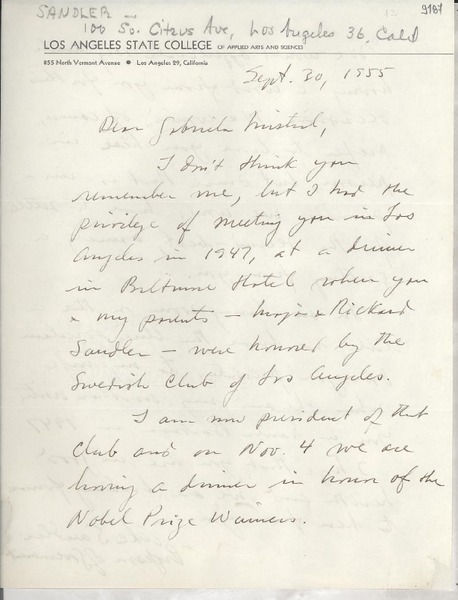 SANDLER —
100 So. Citrus Ave, Los Angeles 36, Calif
9187
12
LOS ANGELES STATE COLLEGE OF APPLIED ARTS AND SCIENCES
855 North Vermont Avenue • Los Angeles 29, California
Sept. 30, 1955
Dear Gabriela Mistral,
I don't think you
remember me, but I had the
privilege of meeting you in Los
Angeles in 1947, at a dinner
in Biltmore Hotel when you
& my parents — Maja & Rickard
Sandler — were honored by the
Swedish Club of Los Angeles.
I am now president of that
Club and on Nov. 4 we are
having a dinner in honor of the
Nobel Prize Winners.